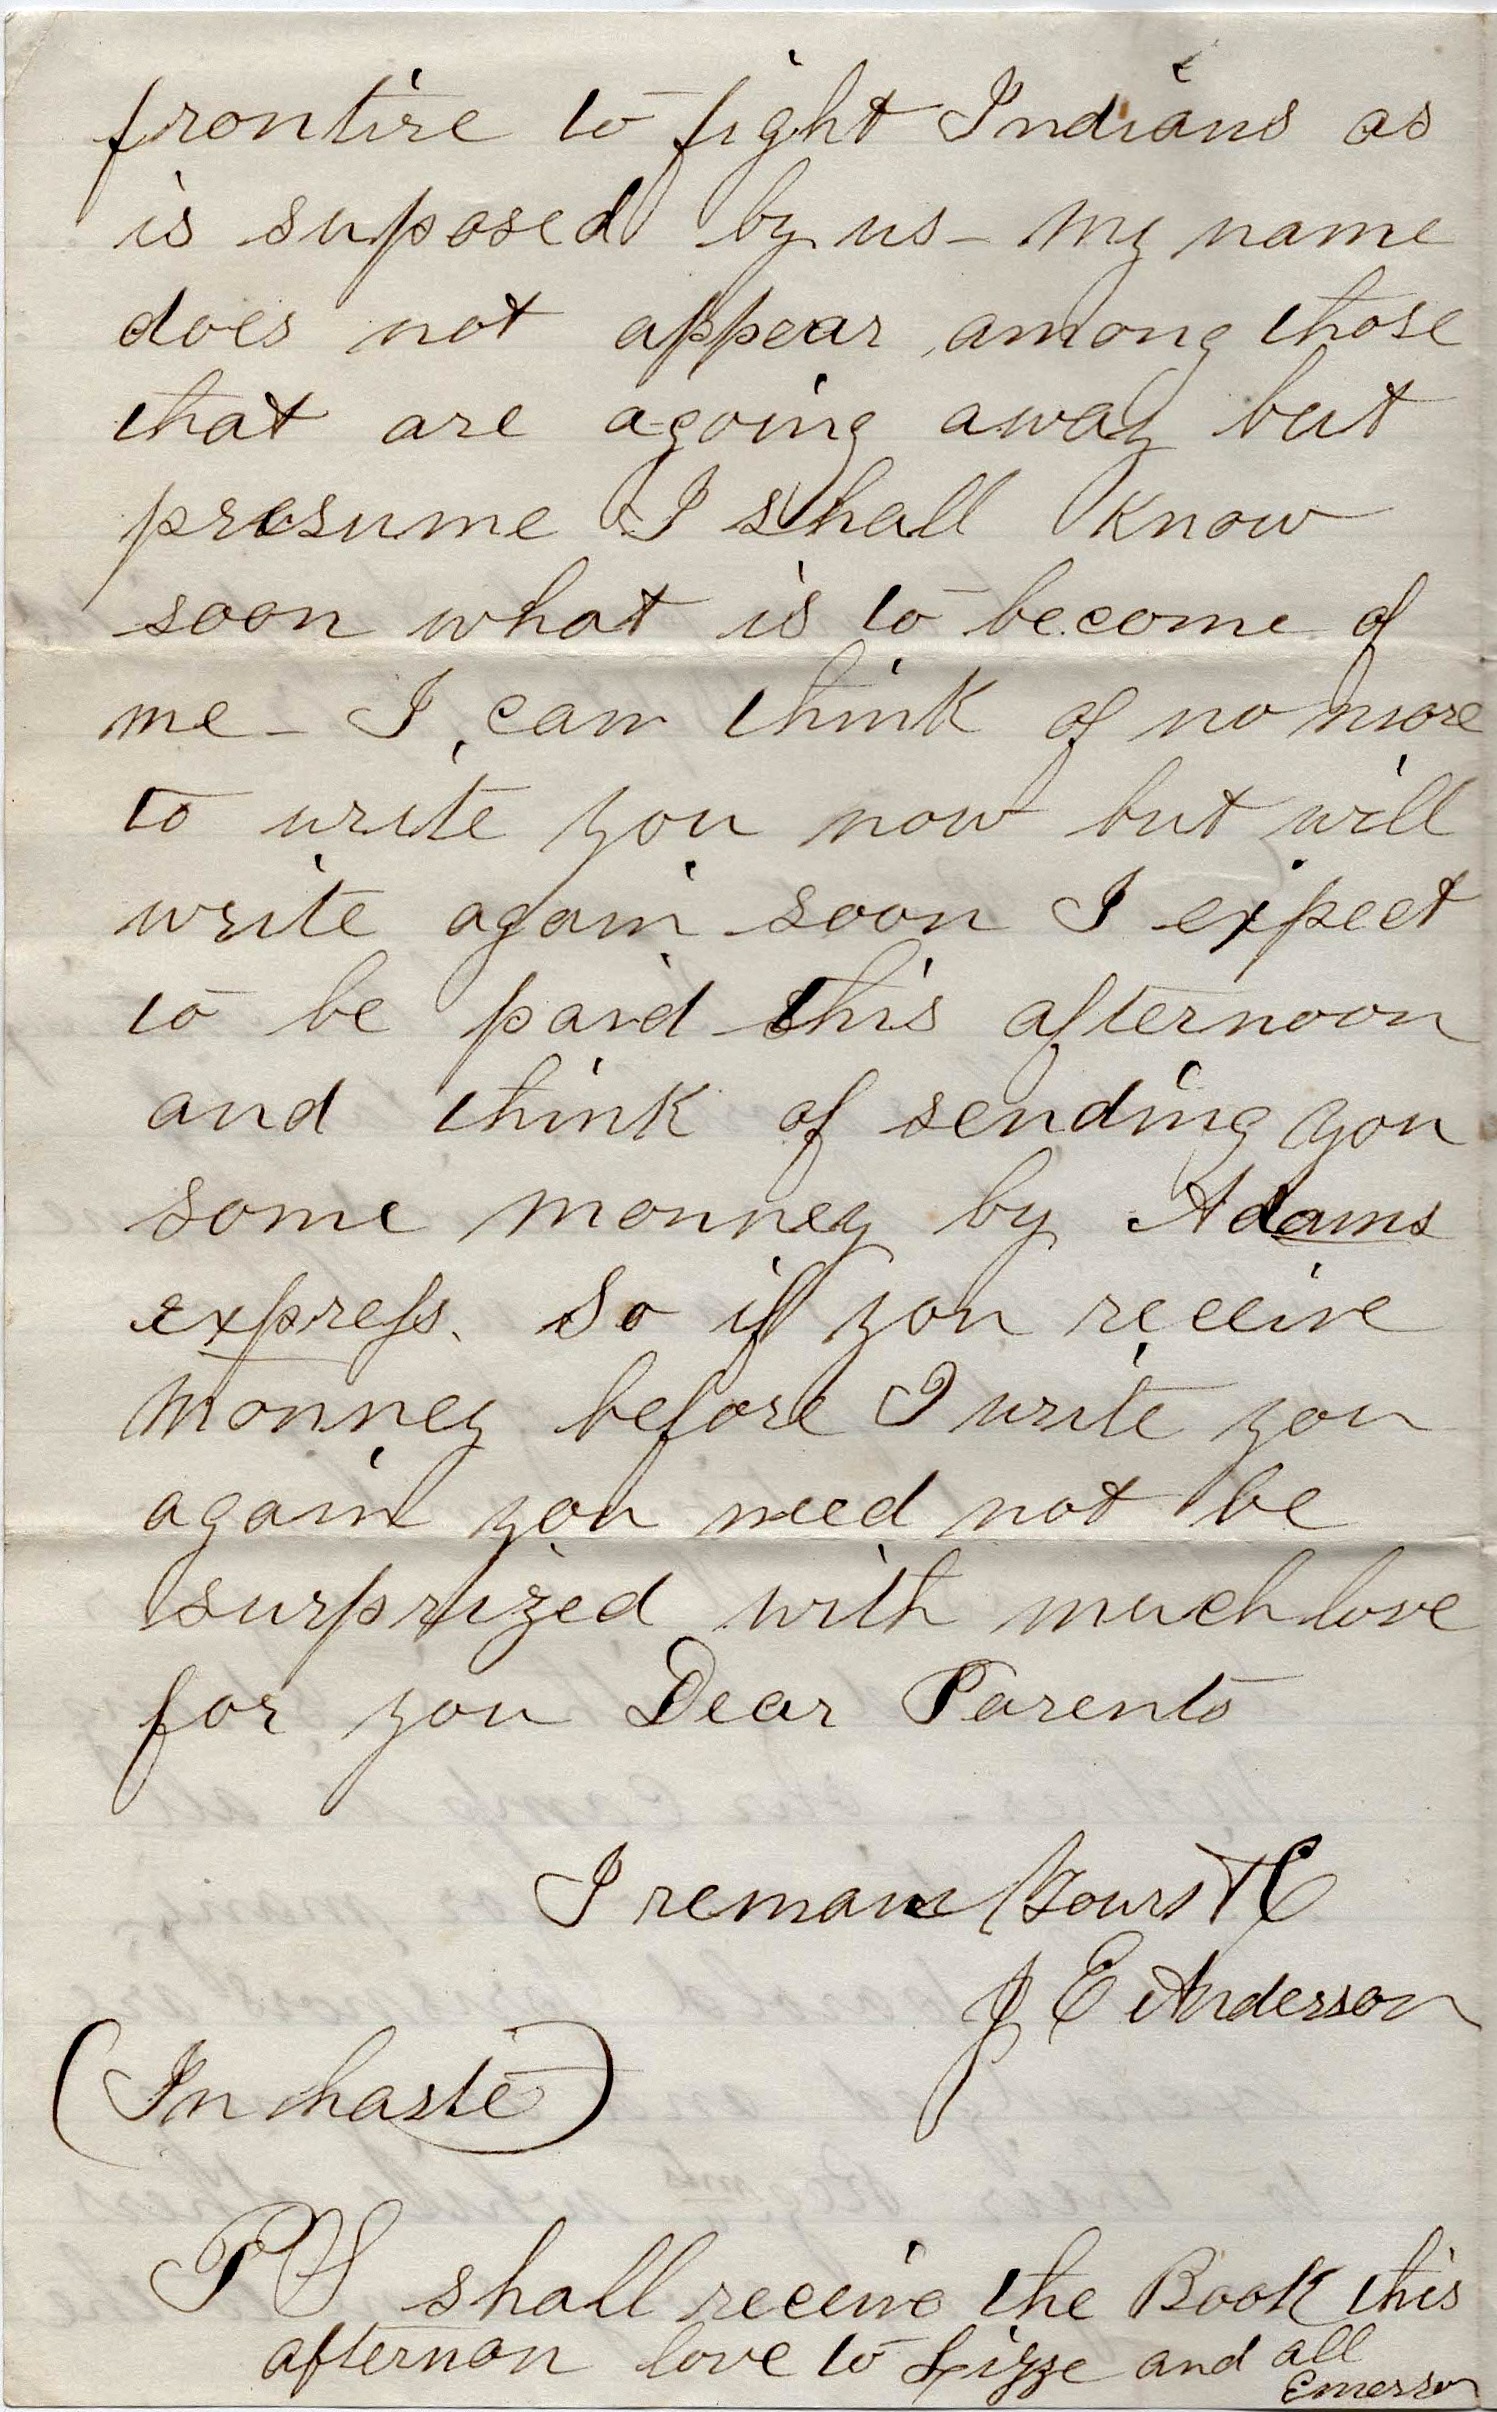 frontire to fight Indians as
is suposed by us - My name
does not appear among those
that are agoing away but
presume I shall know
soon what is to become of
me - I can think of no more
to write you now but will
write again soon I expect
to be paid this afternoon
and think of sending you
some monney by Adams
express. So if you receive
Monney before I write you
again you need not be
surprized with much love
for you Dear Parents
I remain Yours &C
J E Anderson
(In haste)
PS shall receive the Book this
afternon love to Lizze and all
Emerson